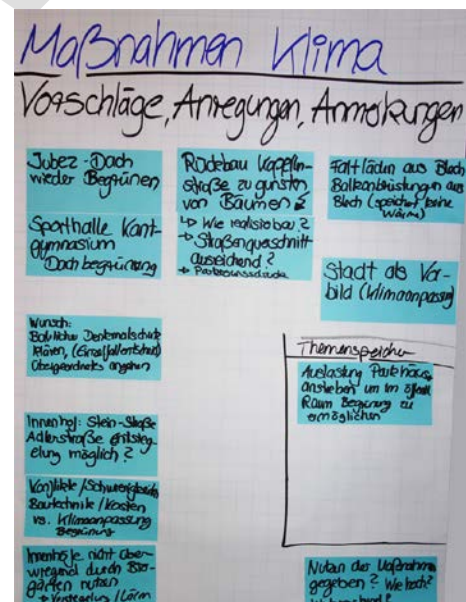 Maßnahmen Klima
Vorschläge, Anregungen, Anmerkungen
Jubez - Dach
wieder Begrünen
Sporthalle Kant-
gymnasium
Dach begrünung
Wunsch:
Denkmalschutz
klären, (Einzelfallentscheid)
Übergeordnetes angehen
Innenhof: Stein-Straße
Adlerstraße entsieg-
elung möglich?
Konflikte / Schwierigkeiten
Bautechnik / Kosten
vs. Klimaanpassung
Begrünung
Innenhöfe nicht über-
wiegend durch Bio-
gärten nutzen
Rückbau Kapellen-
straße zu gunsten
von Bäumen
↳ Wie realisierbar?
→ Straßenquerschnitt
ausreichend?
Faltläden aus Blech
Balkonbrüstungen aus
Blech (speichert keine
Wärme)
Stadt als Vor-
bild (Klimaanpassung)
Themenspeicher
Auslastung Parkhaus
anstreben um im öffentl
Raum Begrünung zu
ermöglichen
Nutzen der Maßnahme
gegeben? Wie hoch?